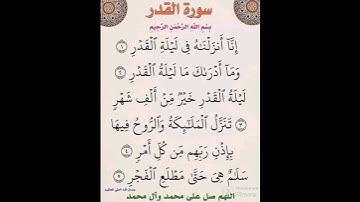 سورة القدر
بِسْمِ اللَّهِ الرَّحْمَٰنِ الرَّحِيمِ
إِنَّآ أَنزَلْنَٰهُ فِى لَيْلَةِ ٱلْقَدْرِ ١
وَمَآ أَدْرَىٰكَ مَا لَيْلَةُ ٱلْقَدْرِ ٢
لَيْلَةُ ٱلْقَدْرِ خَيْرٌ مِّنْ أَلْفِ شَهْرٍ
٣ تَنَزَّلُ ٱلْمَلَٰٓئِكَةُ وَٱلرُّوحُ فِيهَا
بِإِذْنِ رَبِّهِم مِّن كُلِّ أَمْرٍ ٤
سَلَٰمٌ هِىَ حَتَّىٰ مَطْلَعِ ٱلْفَجْرِ ٥
اللهم صل على محمد وآل محمد